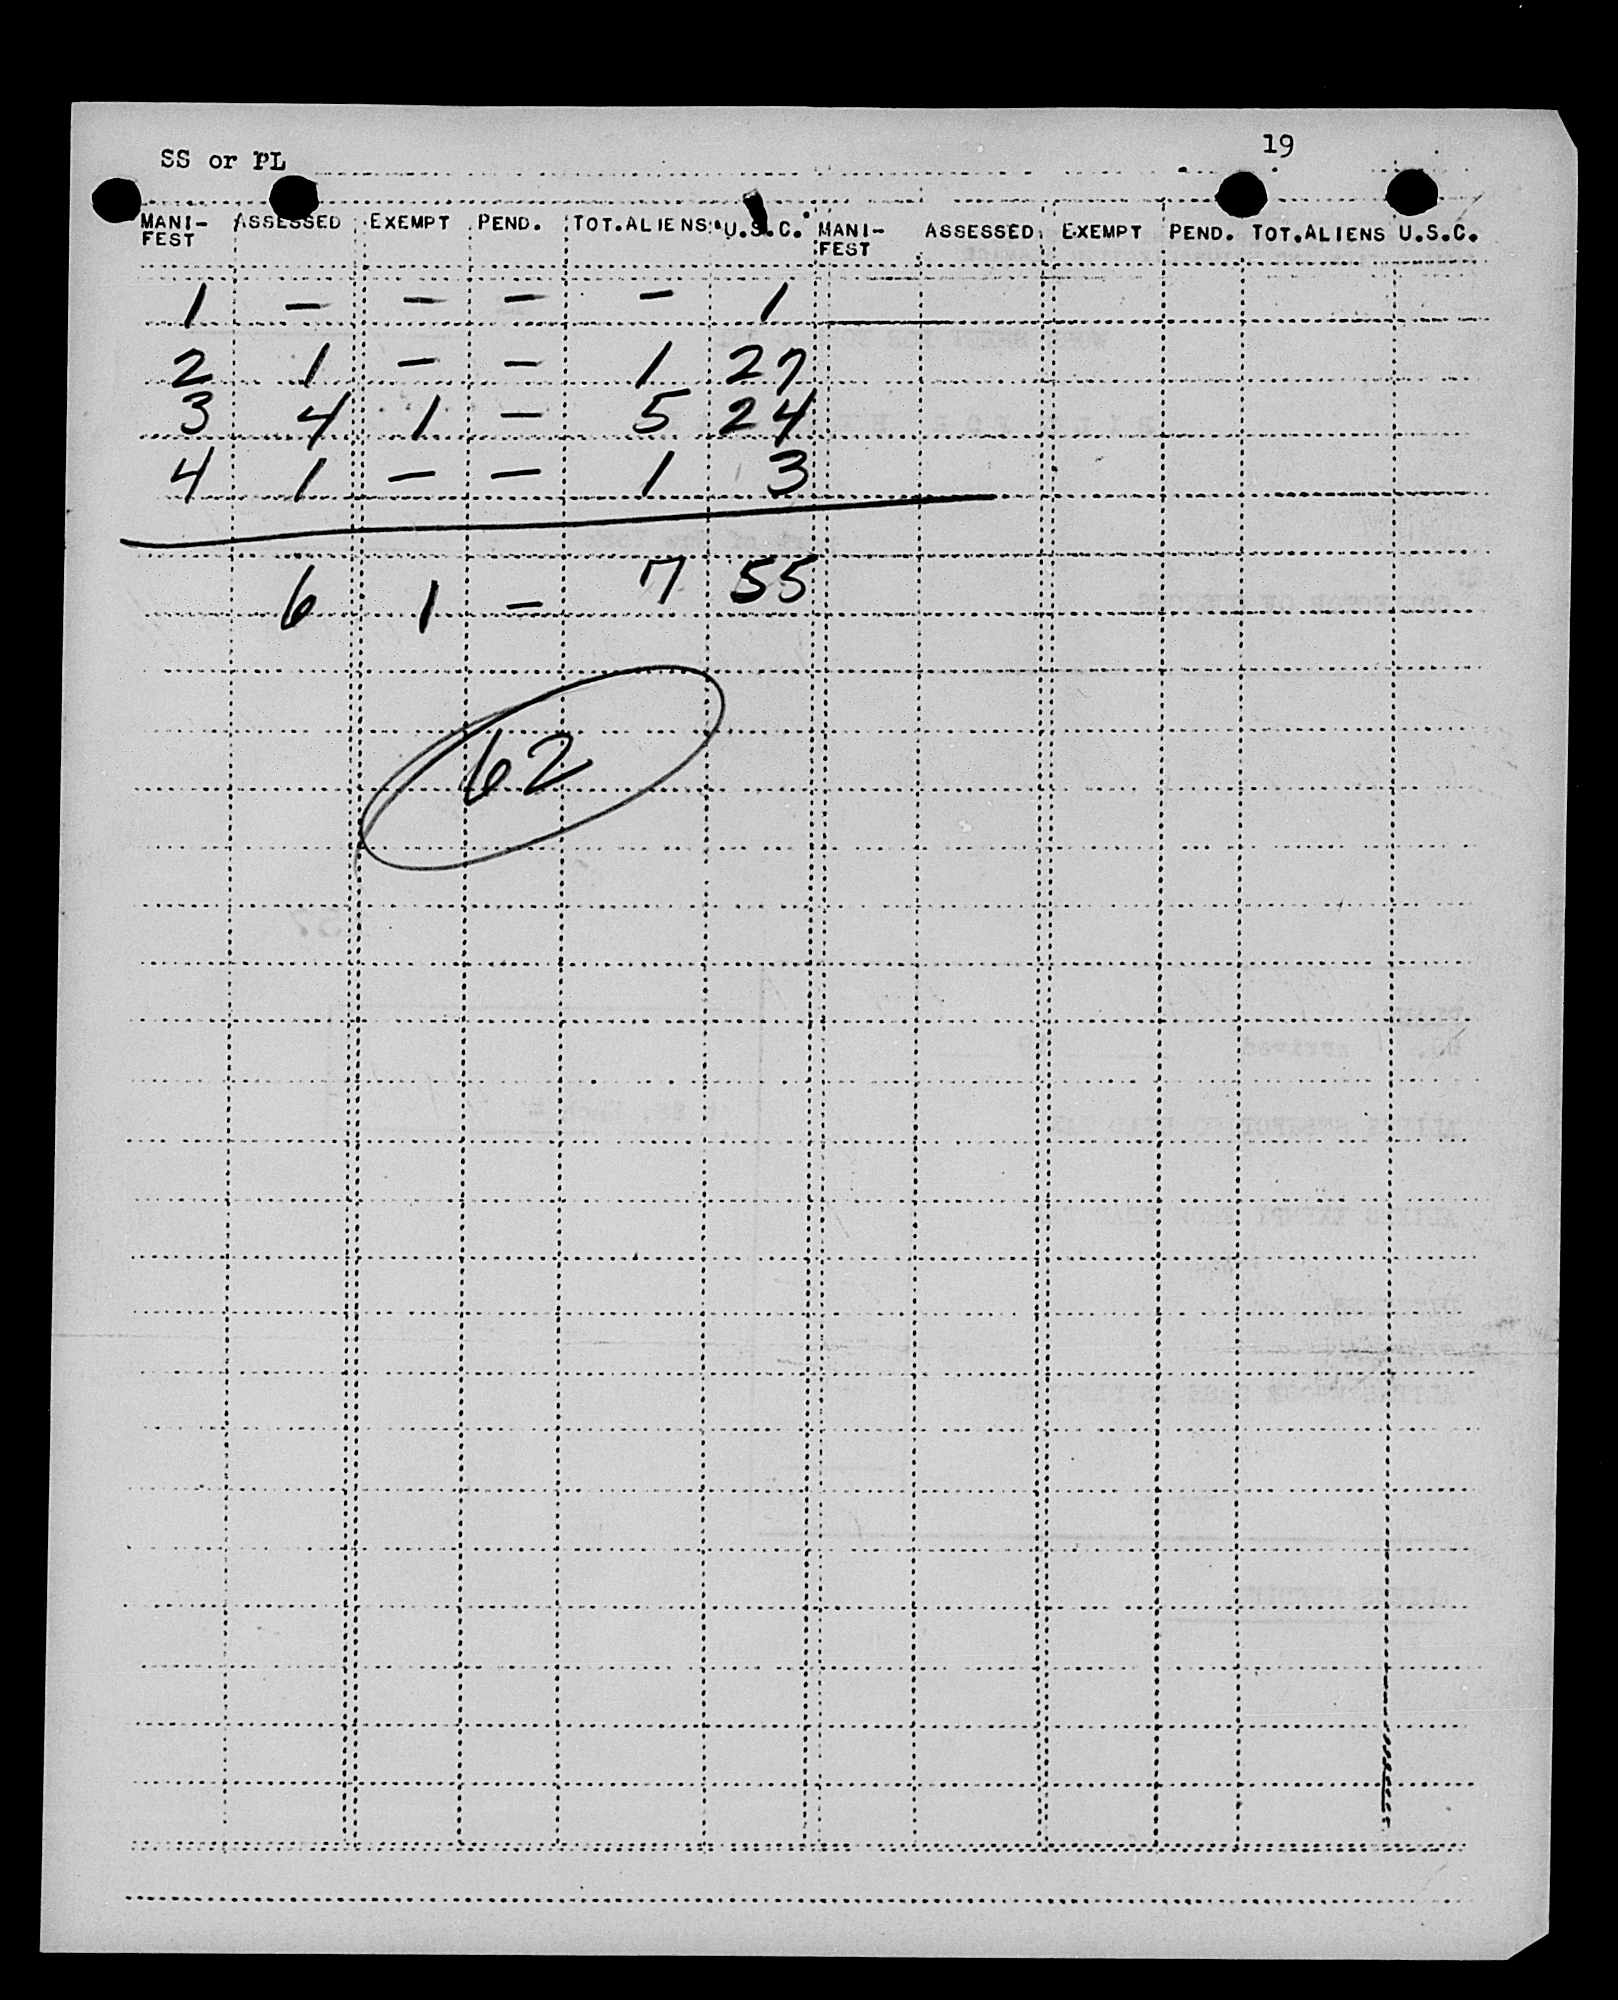 19
SS or PL
MANI-FEST ASSESSED EXEMPT PEND. TOT.ALIENS U.S.C. MANI-FEST ASSESSED EXEMPT PEND. TOT.ALIENS U.S.C.
1 - - - - 1
2 1 - - 1 27
3 4 1 - 5 24
4 1 - - 1 3
6 1 - 7 55
62